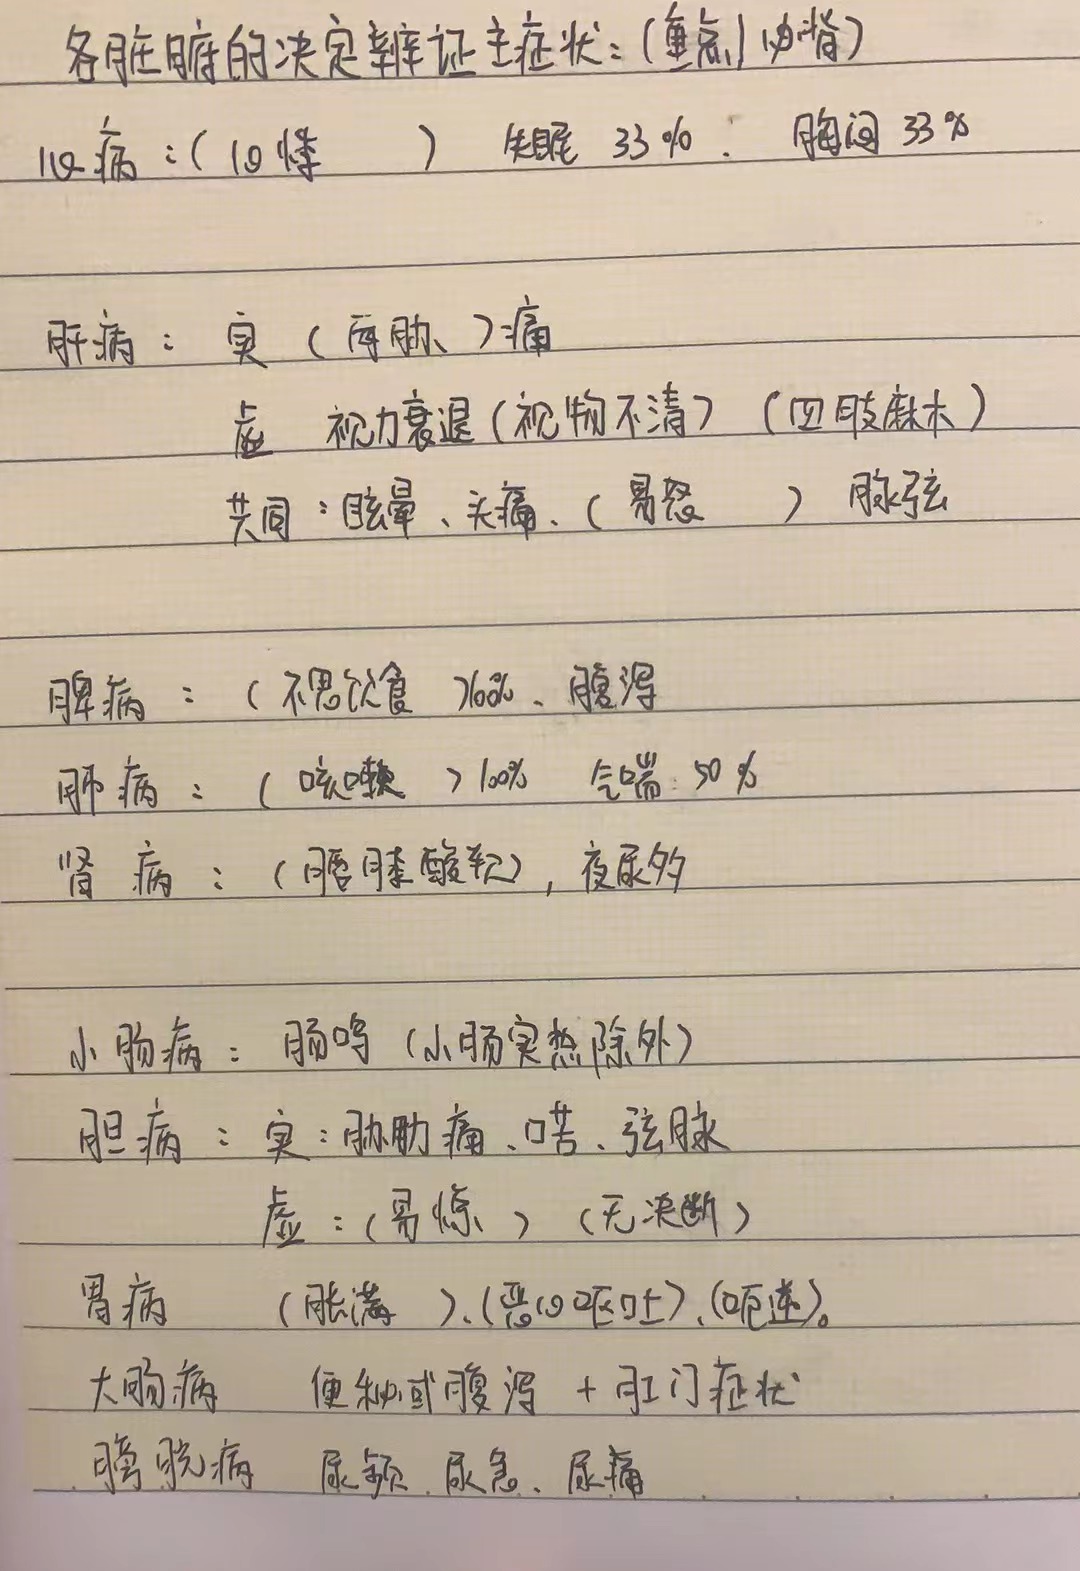 各脏腑的决定辨证主症状：(重点)必背)
心病：(心悸　　) 失眠 33%. 胸闷 33%
肝病： 实 (两胁、)痛
虚 视力衰退(视物不清) (四肢麻木)
共同：眩晕、头痛、(易怒　　) 脉弦
脾病： (不思饮食 )100%、腹泻
肺病： ( 咳嗽 )100% 气喘 50%
肾病： (腰膝酸软), 夜尿多
小肠病： 肠鸣 (小肠实热除外)
胆病： 实：胁肋痛、口苦、弦脉
虚：(易惊、) (无决断)
胃病 (胀满　　)、(恶心呕吐)、(呃逆)。
大肠病 便秘或腹泻 + 肛门症状
膀胱病 尿频、尿急、尿痛